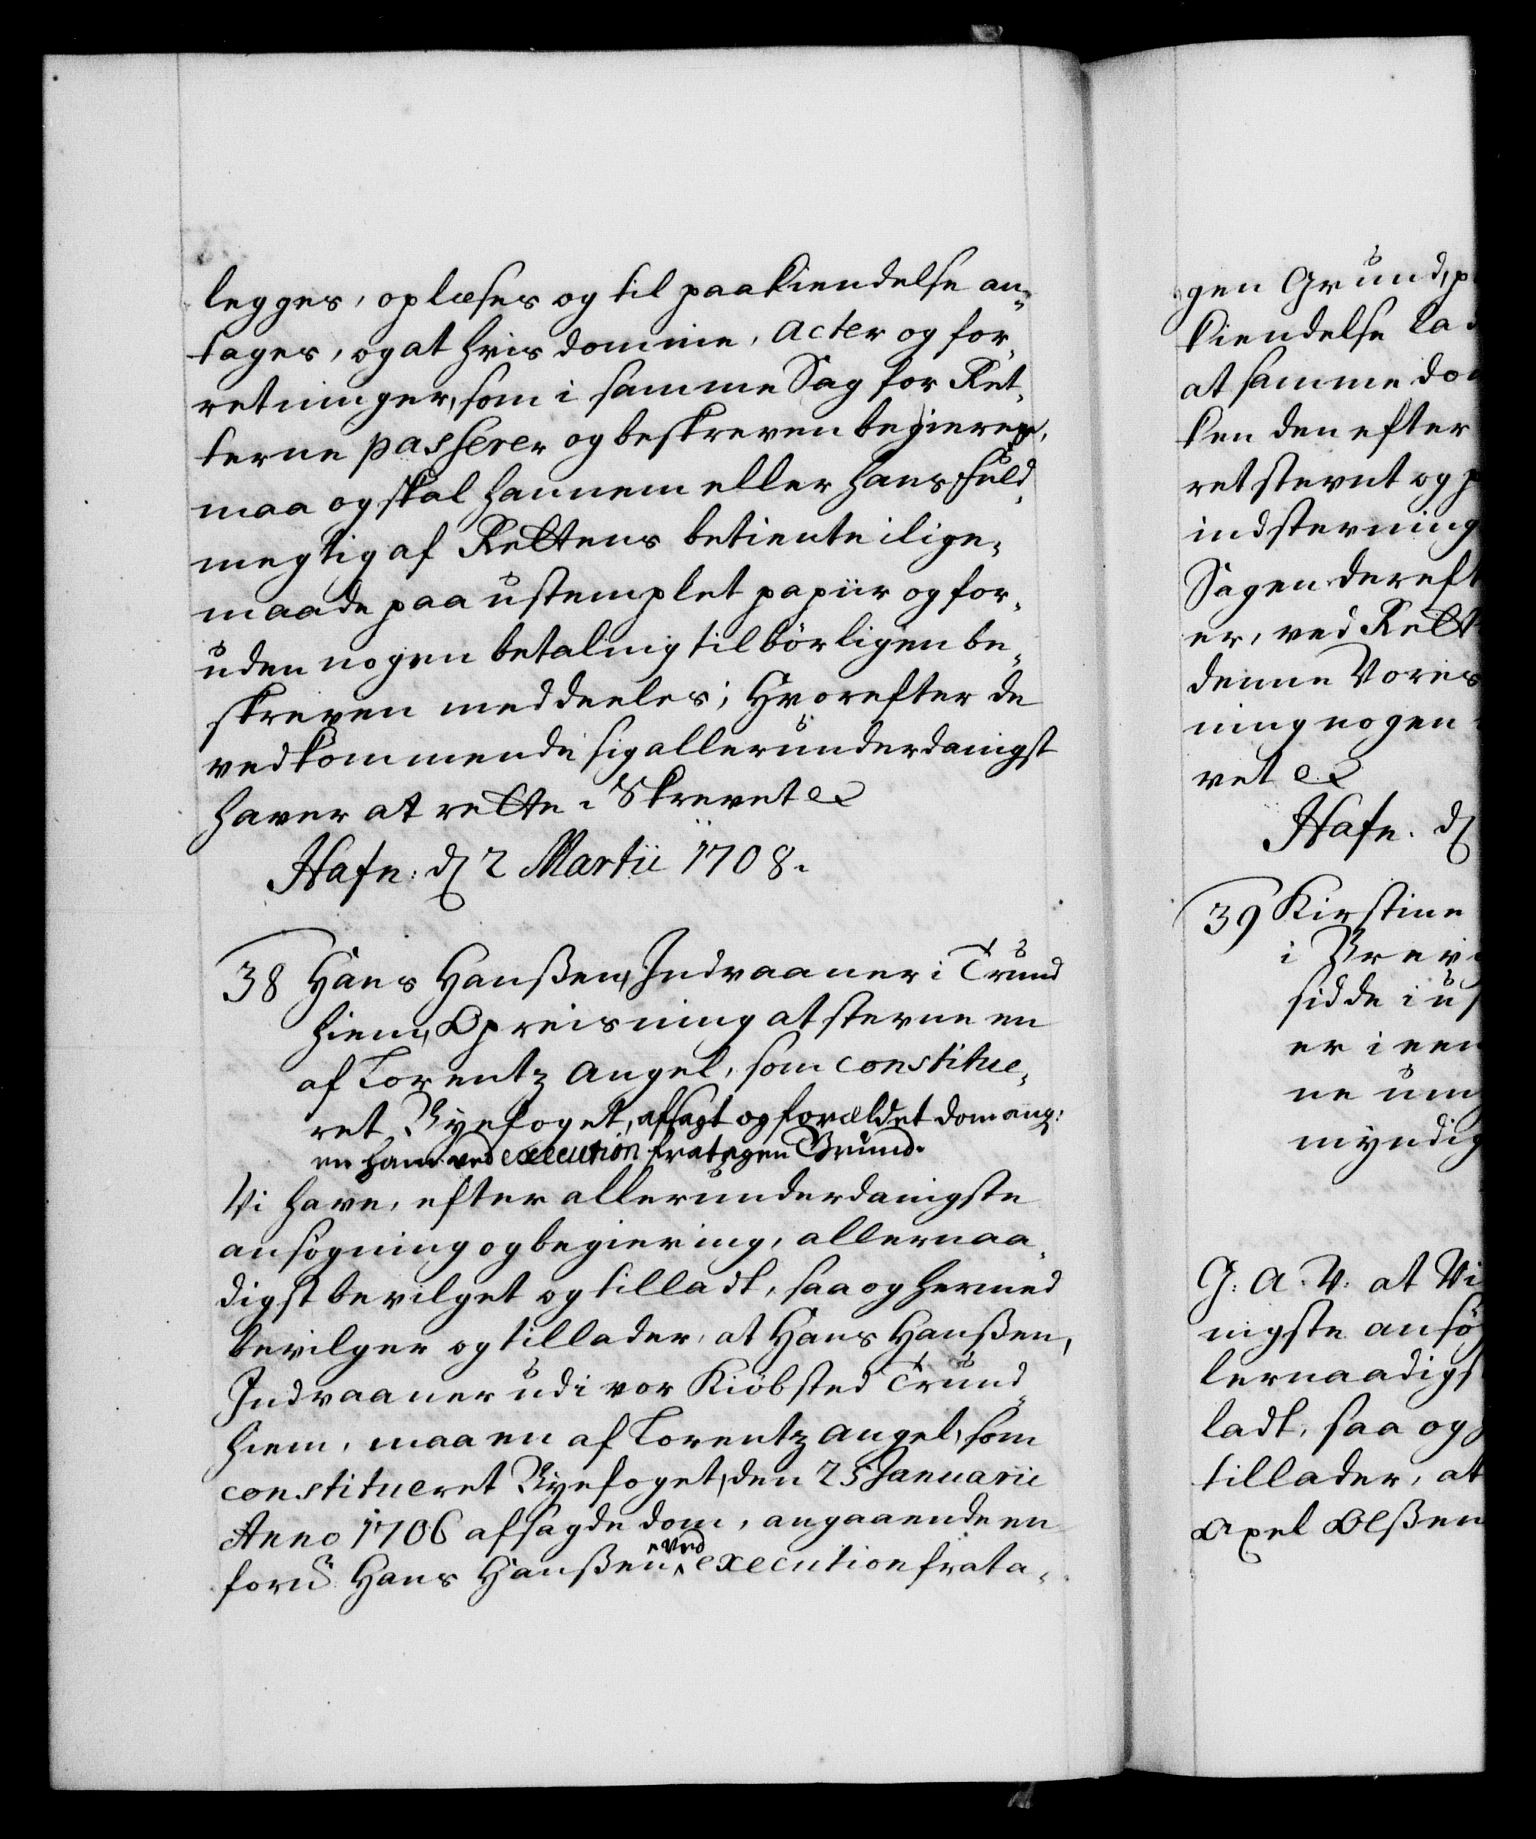 legges, oplæses og til paakiendelse an-
tages, og at hvis domme, Acter og for-
retninger, som i samme Sag for Ret-
terne passerer og beskreven begieres,
maa og skal hannem eller hans fuld-
megtig af Rettens betiente i lige-
maade paa ustemplet papiir og for-
uden nogen betaling tilbörligen be-
skreven meddeeles; Hvorefter de
vedkommende sig allerunderdanigst
haver at rette. Skrevet
Hafn: d 2 Martii 1708.
38 Hans Hanßen, Indvaaner i Trund
hiem, Opreisning at stevne en
af Lorentz Angel, som constitue-
ret Byefoget, afsagt og forældet dom ang:
en ham ved execution fratagen Grund.
Vi have, efter allerunderdanigste
ansögning og begiering, allernaa-
digst bevilget og tilladt, saa og hermed
bevilger og tillader, at Hans Hanßen,
Indvaaner udi vor Kiöbsted Trund-
hiem, maa en af Lorentz Angel, som
constitueret Byefoget, den 25 Januarii
Anno 1706 afsagde dom, angaaende en
forn Hans Hanßen ved execution frata-
gen Grund, p
kiendelse la
at samme do
ken den efter
ret stevnt og p
indstevning
Sagen dereft
er, ved Rett
denne Vores
ning nogen
vet
Hafn. d
39 Kirstine
i Brevi
sidde i us
er i een
ne um
myndig
G: A: V: at Vi
nigste ansö
lernaadigs
ladt, saa og
tillader, at
Axel Olßen